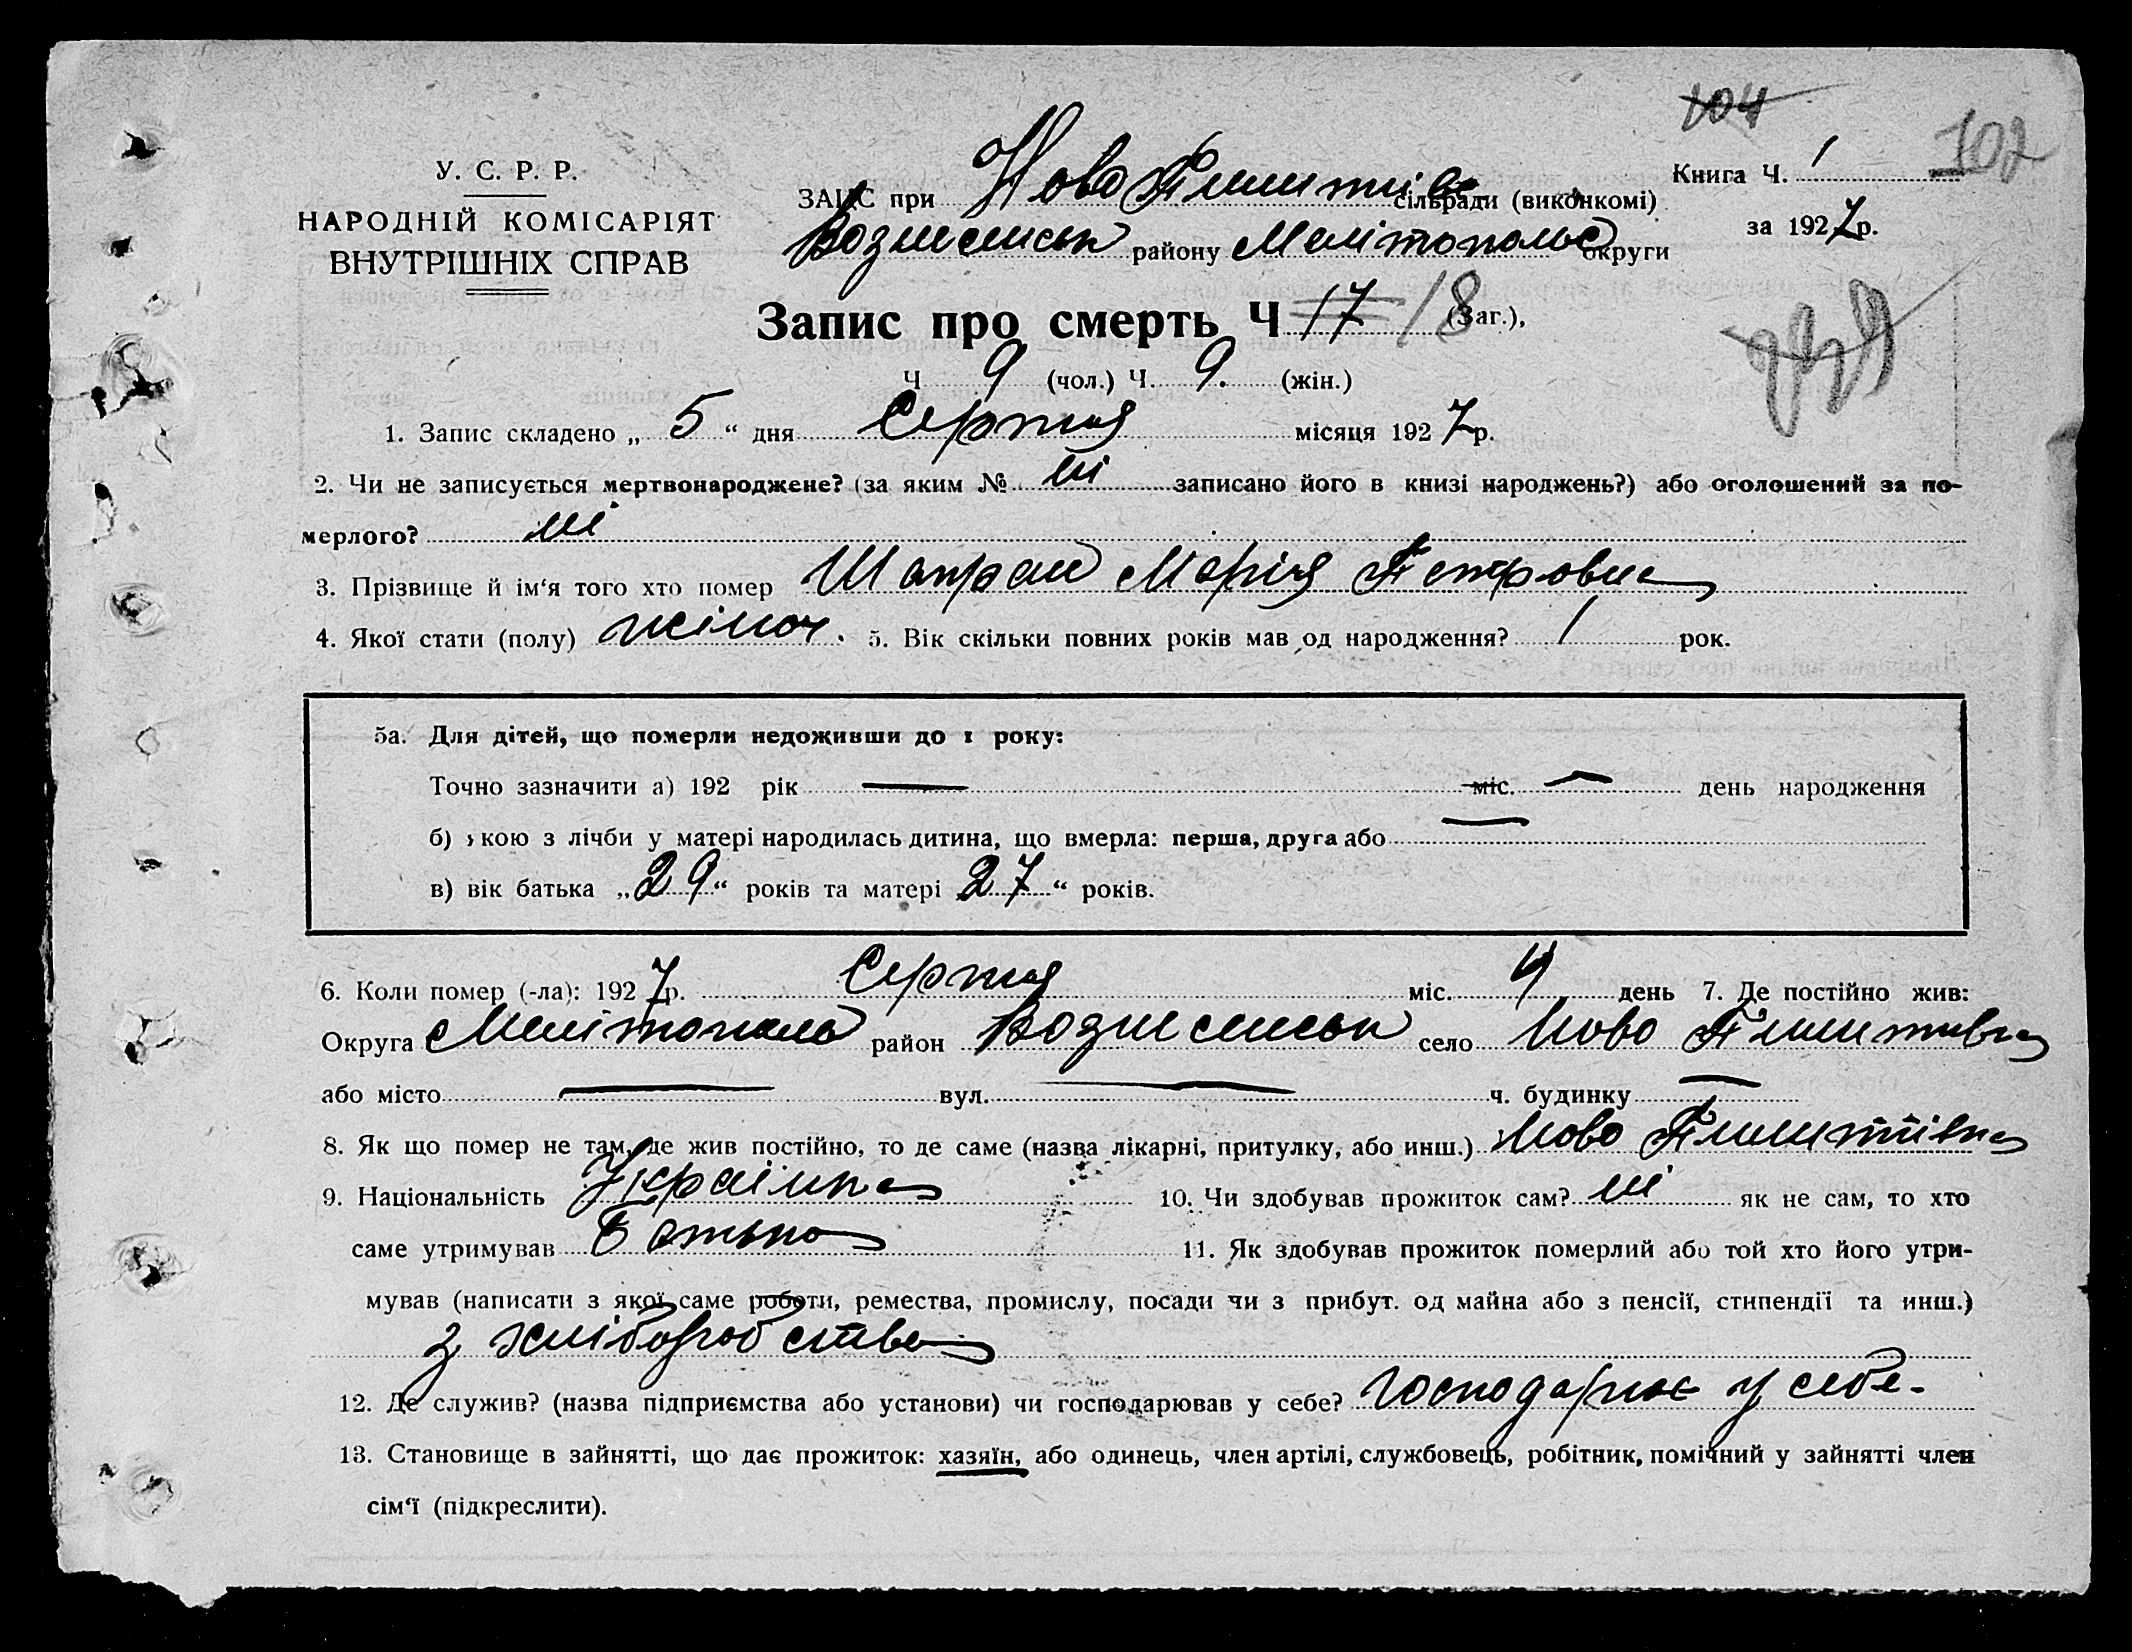 104
102
У. С. Р. Р.
НАРОДНІЙ КОМІСАРІЯТ
ВНУТРІШНІХ СПРАВ
ЗАГС при Ново Пилипівс сільради (виконкомі)
Вознесенськ району Мелітопольс округи
Книга Ч. 1
за 1927 р.
Запис про смерть Ч 17 18 (Заг.),
Ч 9 (чол.) Ч. 9. (жін.)
1. Запис складено „ 5 “ дня Серпня місяця 1927 р.
2. Чи не записується мертвонароджене? (за яким № ні записано його в книзі народжень?) або оголошений за по-
мерлого? ні
3. Прізвище й ім‘я того хто помер Шапран Марія Петровна
4. Якої стати (полу) жіноч. 5. Вік скільки повних років мав од народження? 1 рок.
5а. Для дітей, що померли недоживши до 1 року:
Точно зазначити а) 192 рік — міс. — день народження
б) якою з лічби у матері народилась дитина, що вмерла: перша, друга або —
в) вік батька „29“ років та матері „27“ років.
6. Коли помер (-ла): 1927 р. Серпня міс. 4 день 7. Де постійно жив:
Округа Мелітополь район Вознесенськ село Ново Пилипивка
або місто — вул. — ч. будинку —
8. Як що помер не там, де жив постійно, то де саме (назва лікарні, притулку, або инш.) Ново Пилипівка
9. Національність Українка 10. Чи здобував прожиток сам? ні як не сам, то хто
саме утримував Батько 11. Як здобував прожиток померлий або той хто його утри-
мував (написати з якої саме роботи, ремества, промислу, посади чи з прибут. од майна або з пенсії, стипендії та инш.)
з хліборобства
12. Де служив? (назва підприємства або установи) чи господарював у себе? Господарює у себе.
13. Становище в зайнятті, що дає прожиток: хазяїн, або одинець, член артілі, службовець, робітник, помічний у зайнятті член
сім‘ї (підкреслити).